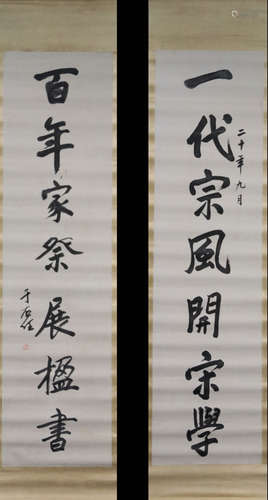 一代宗風開宋學
二十年九月
百年家祭展楹書
于右任